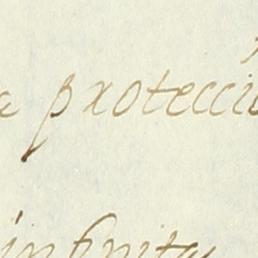 a protecció
infinita